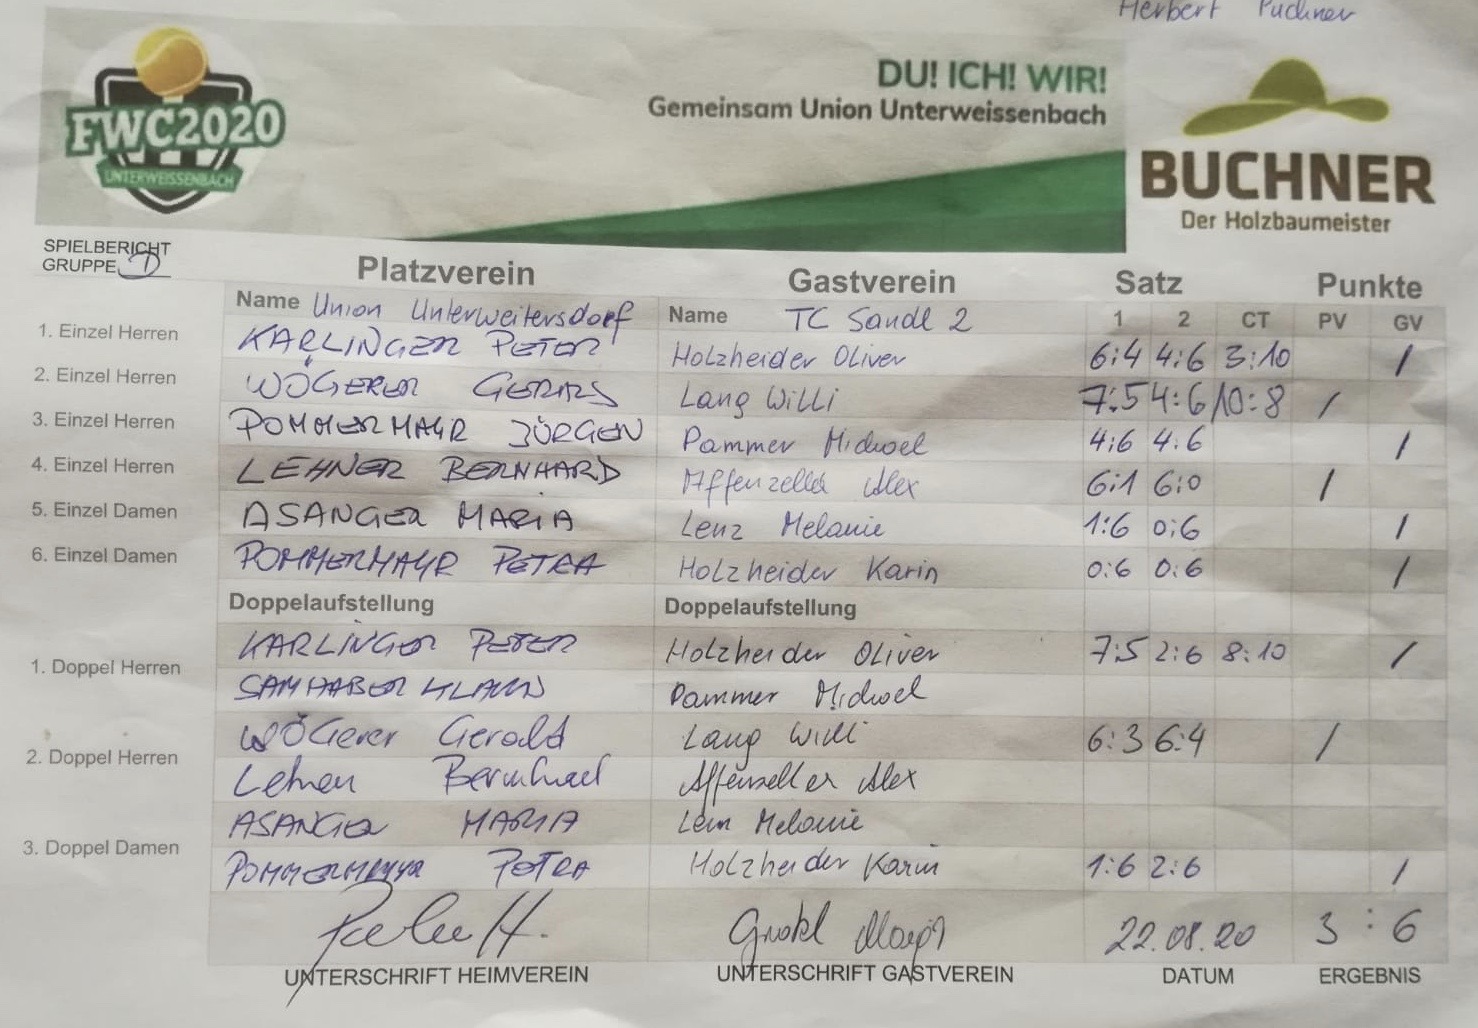 Herbert Puchner
FWC2020
UNTERWEISSENBACH
DU! ICH! WIR!
Gemeinsam Union Unterweissenbach
BUCHNER
Der Holzbaumeister
SPIELBERICHT
GRUPPE D
Platzverein Gastverein Satz Punkte
Name Union Unterweitersdorf Name TC Sandl 2 1 2 CT PV GV
1. Einzel Herren KARLINGER PETER Holzheider Oliver 6:4 4:6 3:10 /
2. Einzel Herren WÖGERER Lang Willi 7:5 4:6 10:8 /
3. Einzel Herren POMMERMAYR JÜRGEN Pammer Michael 4:6 4:6 /
4. Einzel Herren LEHNER BERNHARD Affenzeller Alex 6:1 6:0 /
5. Einzel Damen ASANGER MARIA Lenz Melanie 1:6 0:6 /
6. Einzel Damen POMMERMAYR PETRA Holzheider Karin 0:6 0:6 /
Doppelaufstellung Doppelaufstellung
1. Doppel Herren KARLINGER PETER Holzheider Oliver 7:5 2:6 8:10 /
SAMHABER KLAUS Pammer Michael
2. Doppel Herren WÖGerer Gerald Lang Willi 6:3 6:4 /
Lehner Bernhard Affenzeller Alex
3. Doppel Damen ASANGER MARIA Lenz Melanie
POMMERMAYR PETRA Holzheider Karin 1:6 2:6 /
22.08.20 3 : 6
UNTERSCHRIFT HEIMVEREIN UNTERSCHRIFT GASTVEREIN DATUM ERGEBNIS